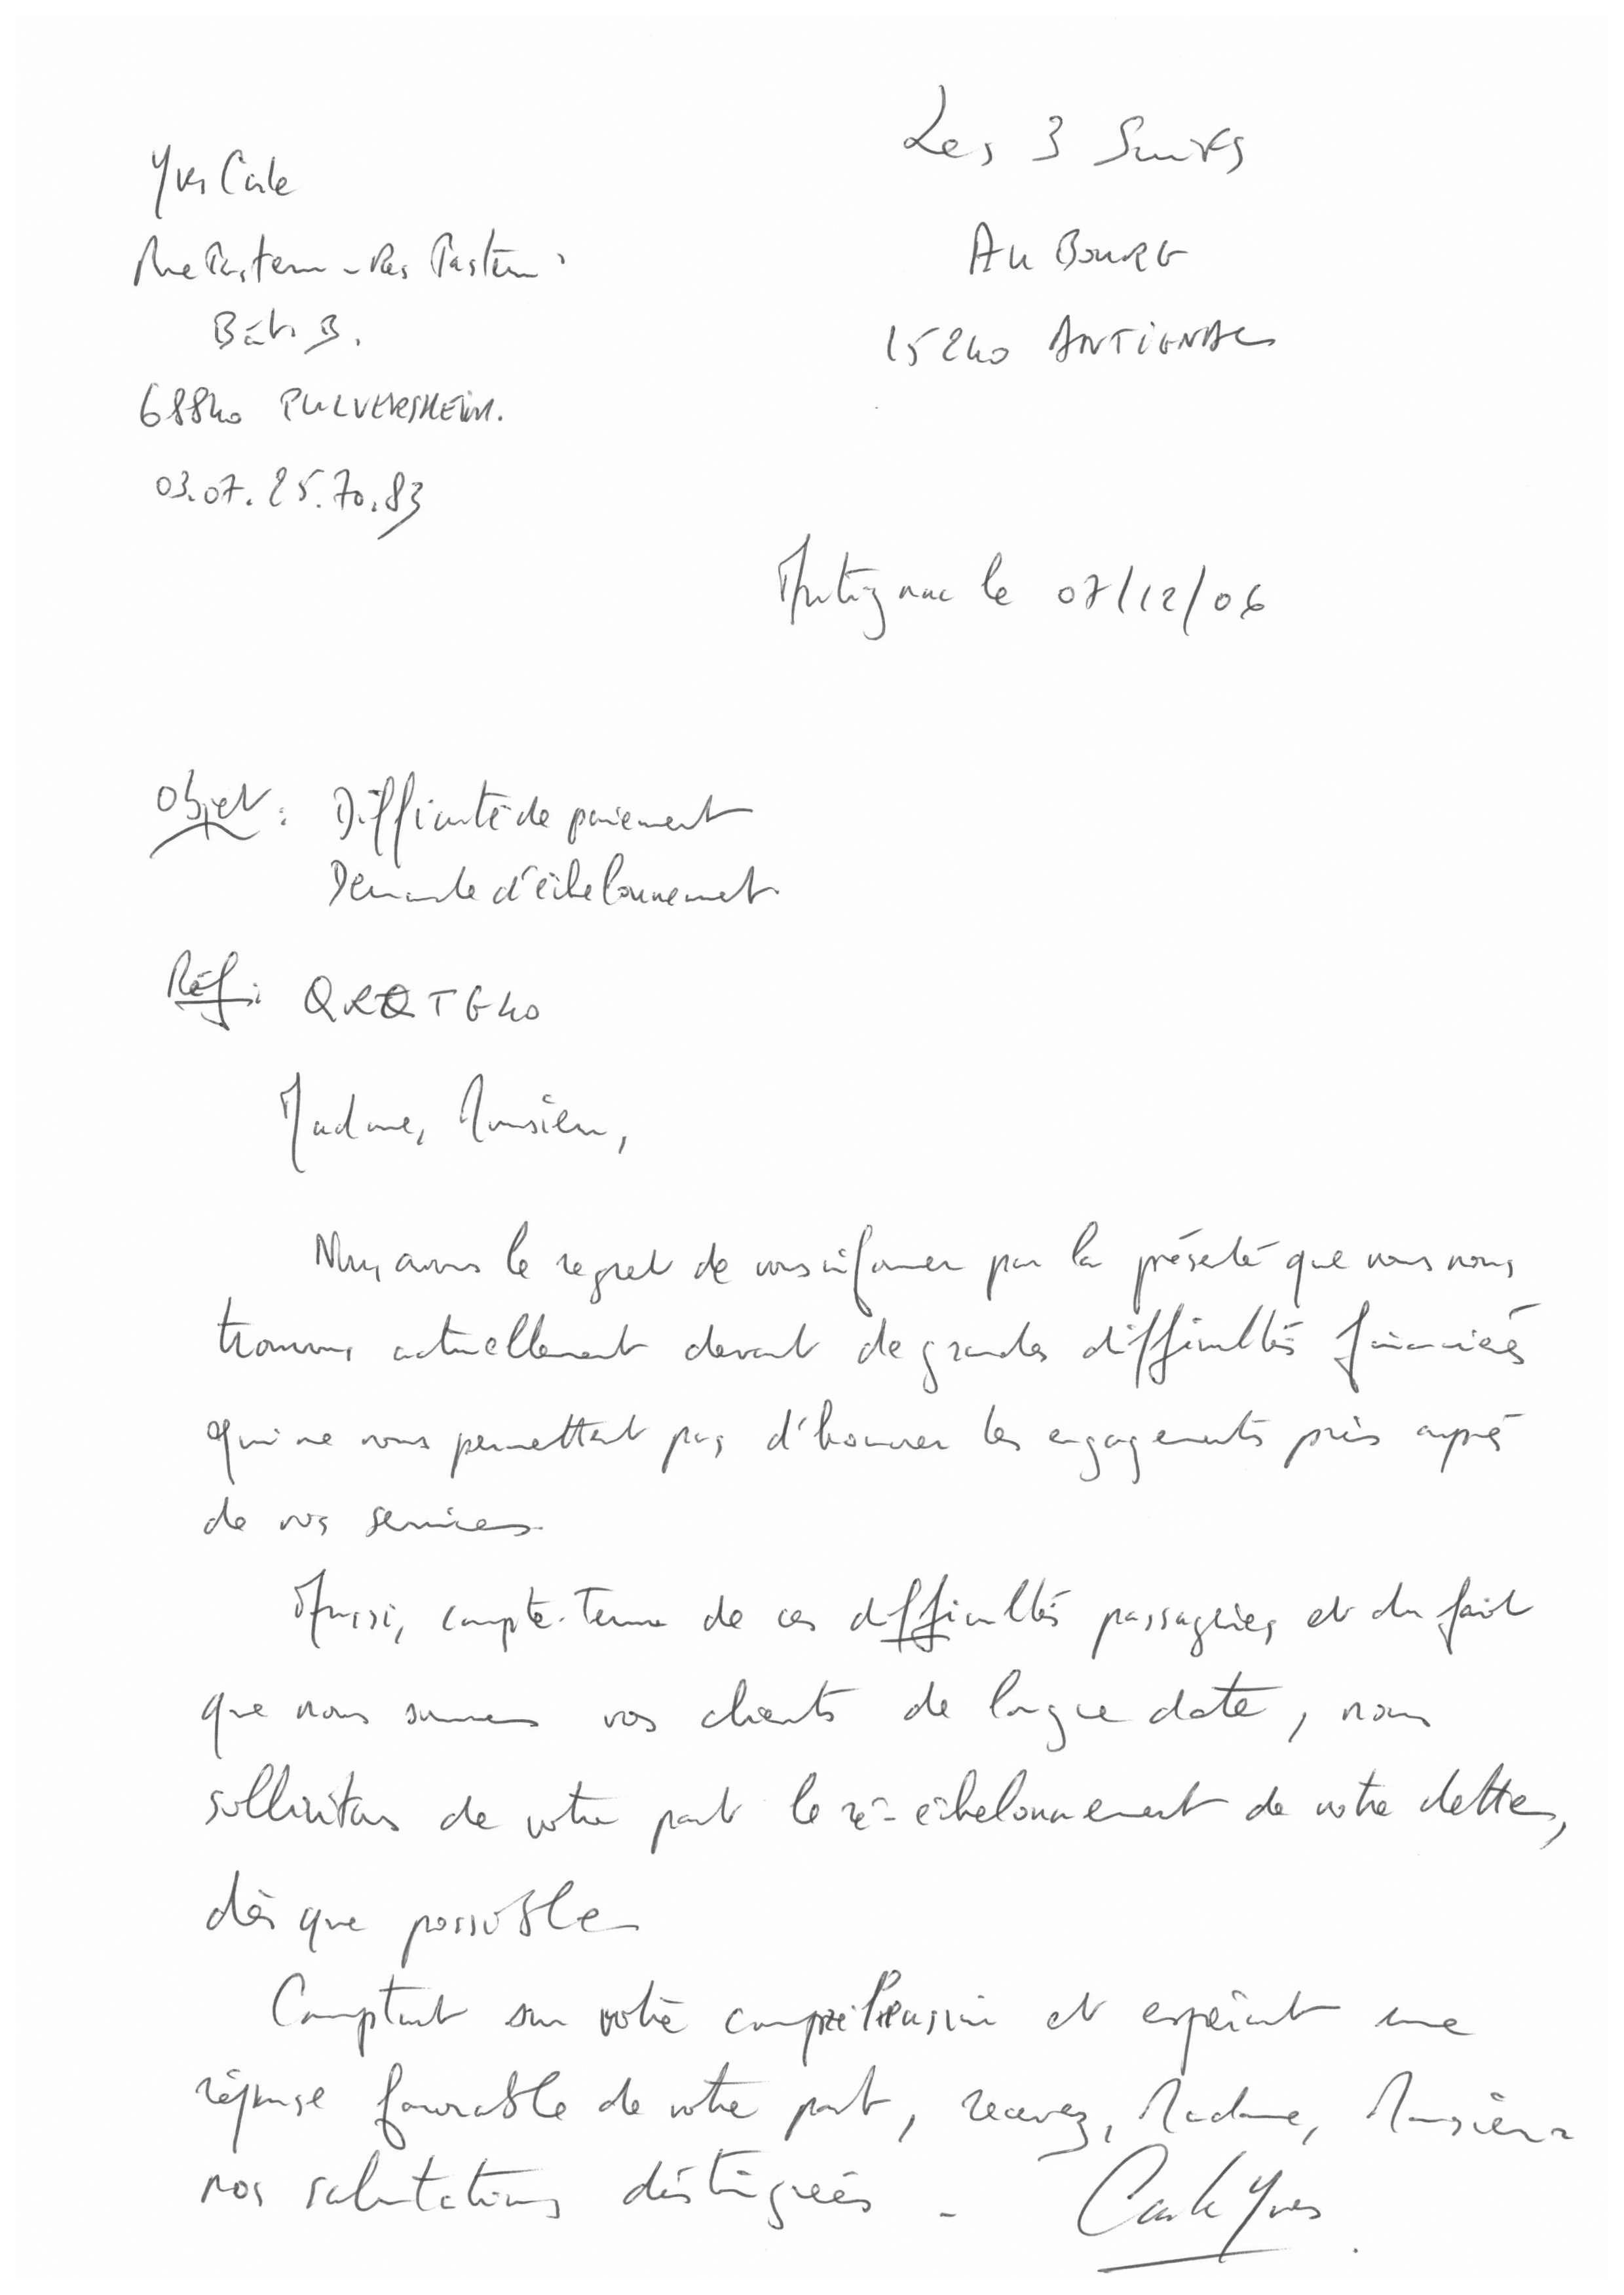 Yves Carle
Rue Pasteur - Res Pasteur
Bât B.
68840 PULVERSHEIM.
03.07.25.70.83
Les 3 Suisses
AU BOURG
15240 ANTIGNAC
Antignac le 07/12/06
Objet : Difficulté de paiement
Demande d'échelonnement
Réf : QRQTG40
Madame, Monsieur,
Nous avons le regret de vous informer par la présente que nous nous
trouvons actuellement devant de grandes difficultés financières
qui ne nous permettent pas d'honorer les engagements pris auprès
de vos services.
Aussi, compte-tenu de ces difficultés passagères et du fait
que nous sommes vos clients de longue date, nous
sollicitons de votre part le ré-échelonnement de notre dette,
dès que possible
Comptant sur votre compréhension et espérant une
réponse favorable de votre part, recevez, Madame, Monsieur
nos salutations distinguées.
Carle Yves